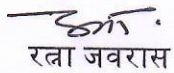 रत्ना जवरास